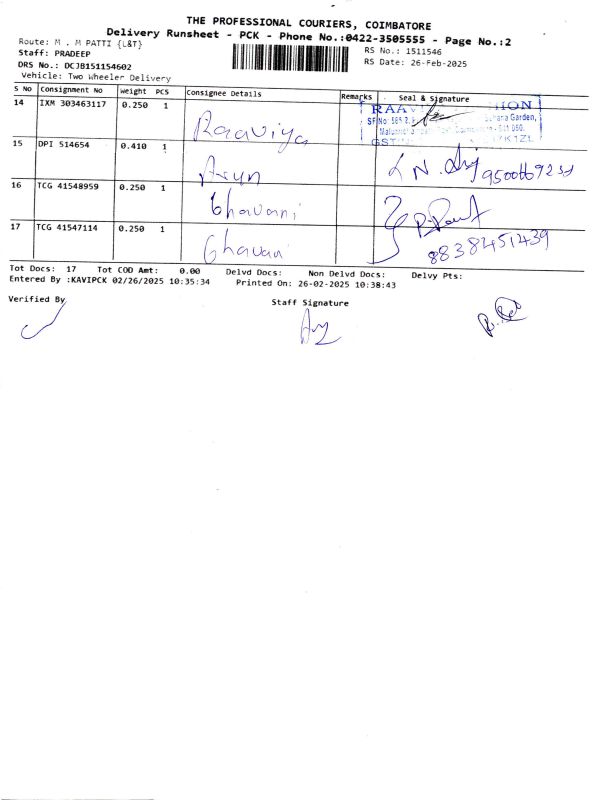 THE PROFESSIONAL COURIERS, COIMBATORE
Delivery Runsheet - PCK - Phone No.:0422-3505555 - Page No.:2
Route: M . M PATTI {L&T}
RS No.: 1511546
Staff: PRADEEP
RS Date: 26-Feb-2025
DRS No.: DCJB151154602
Vehicle: Two Wheeler Delivery
S No Consignment No Weight PCS Consignee Details Remarks Seal & Signature
14 IXM 303463117 0.250 1 Raaviya
15 DPI 514654 0.410 1 Arun
16 TCG 41548959 0.250 1 bhavani
17 TCG 41547114 0.250 1
8838451439
Tot Docs: 17 Tot COD Amt: 0.00 Delvd Docs: Non Delvd Docs: Delvy Pts:
Entered By :KAVIPCK 02/26/2025 10:35:34 Printed On: 26-02-2025 10:38:43
Verified By
Staff Signature